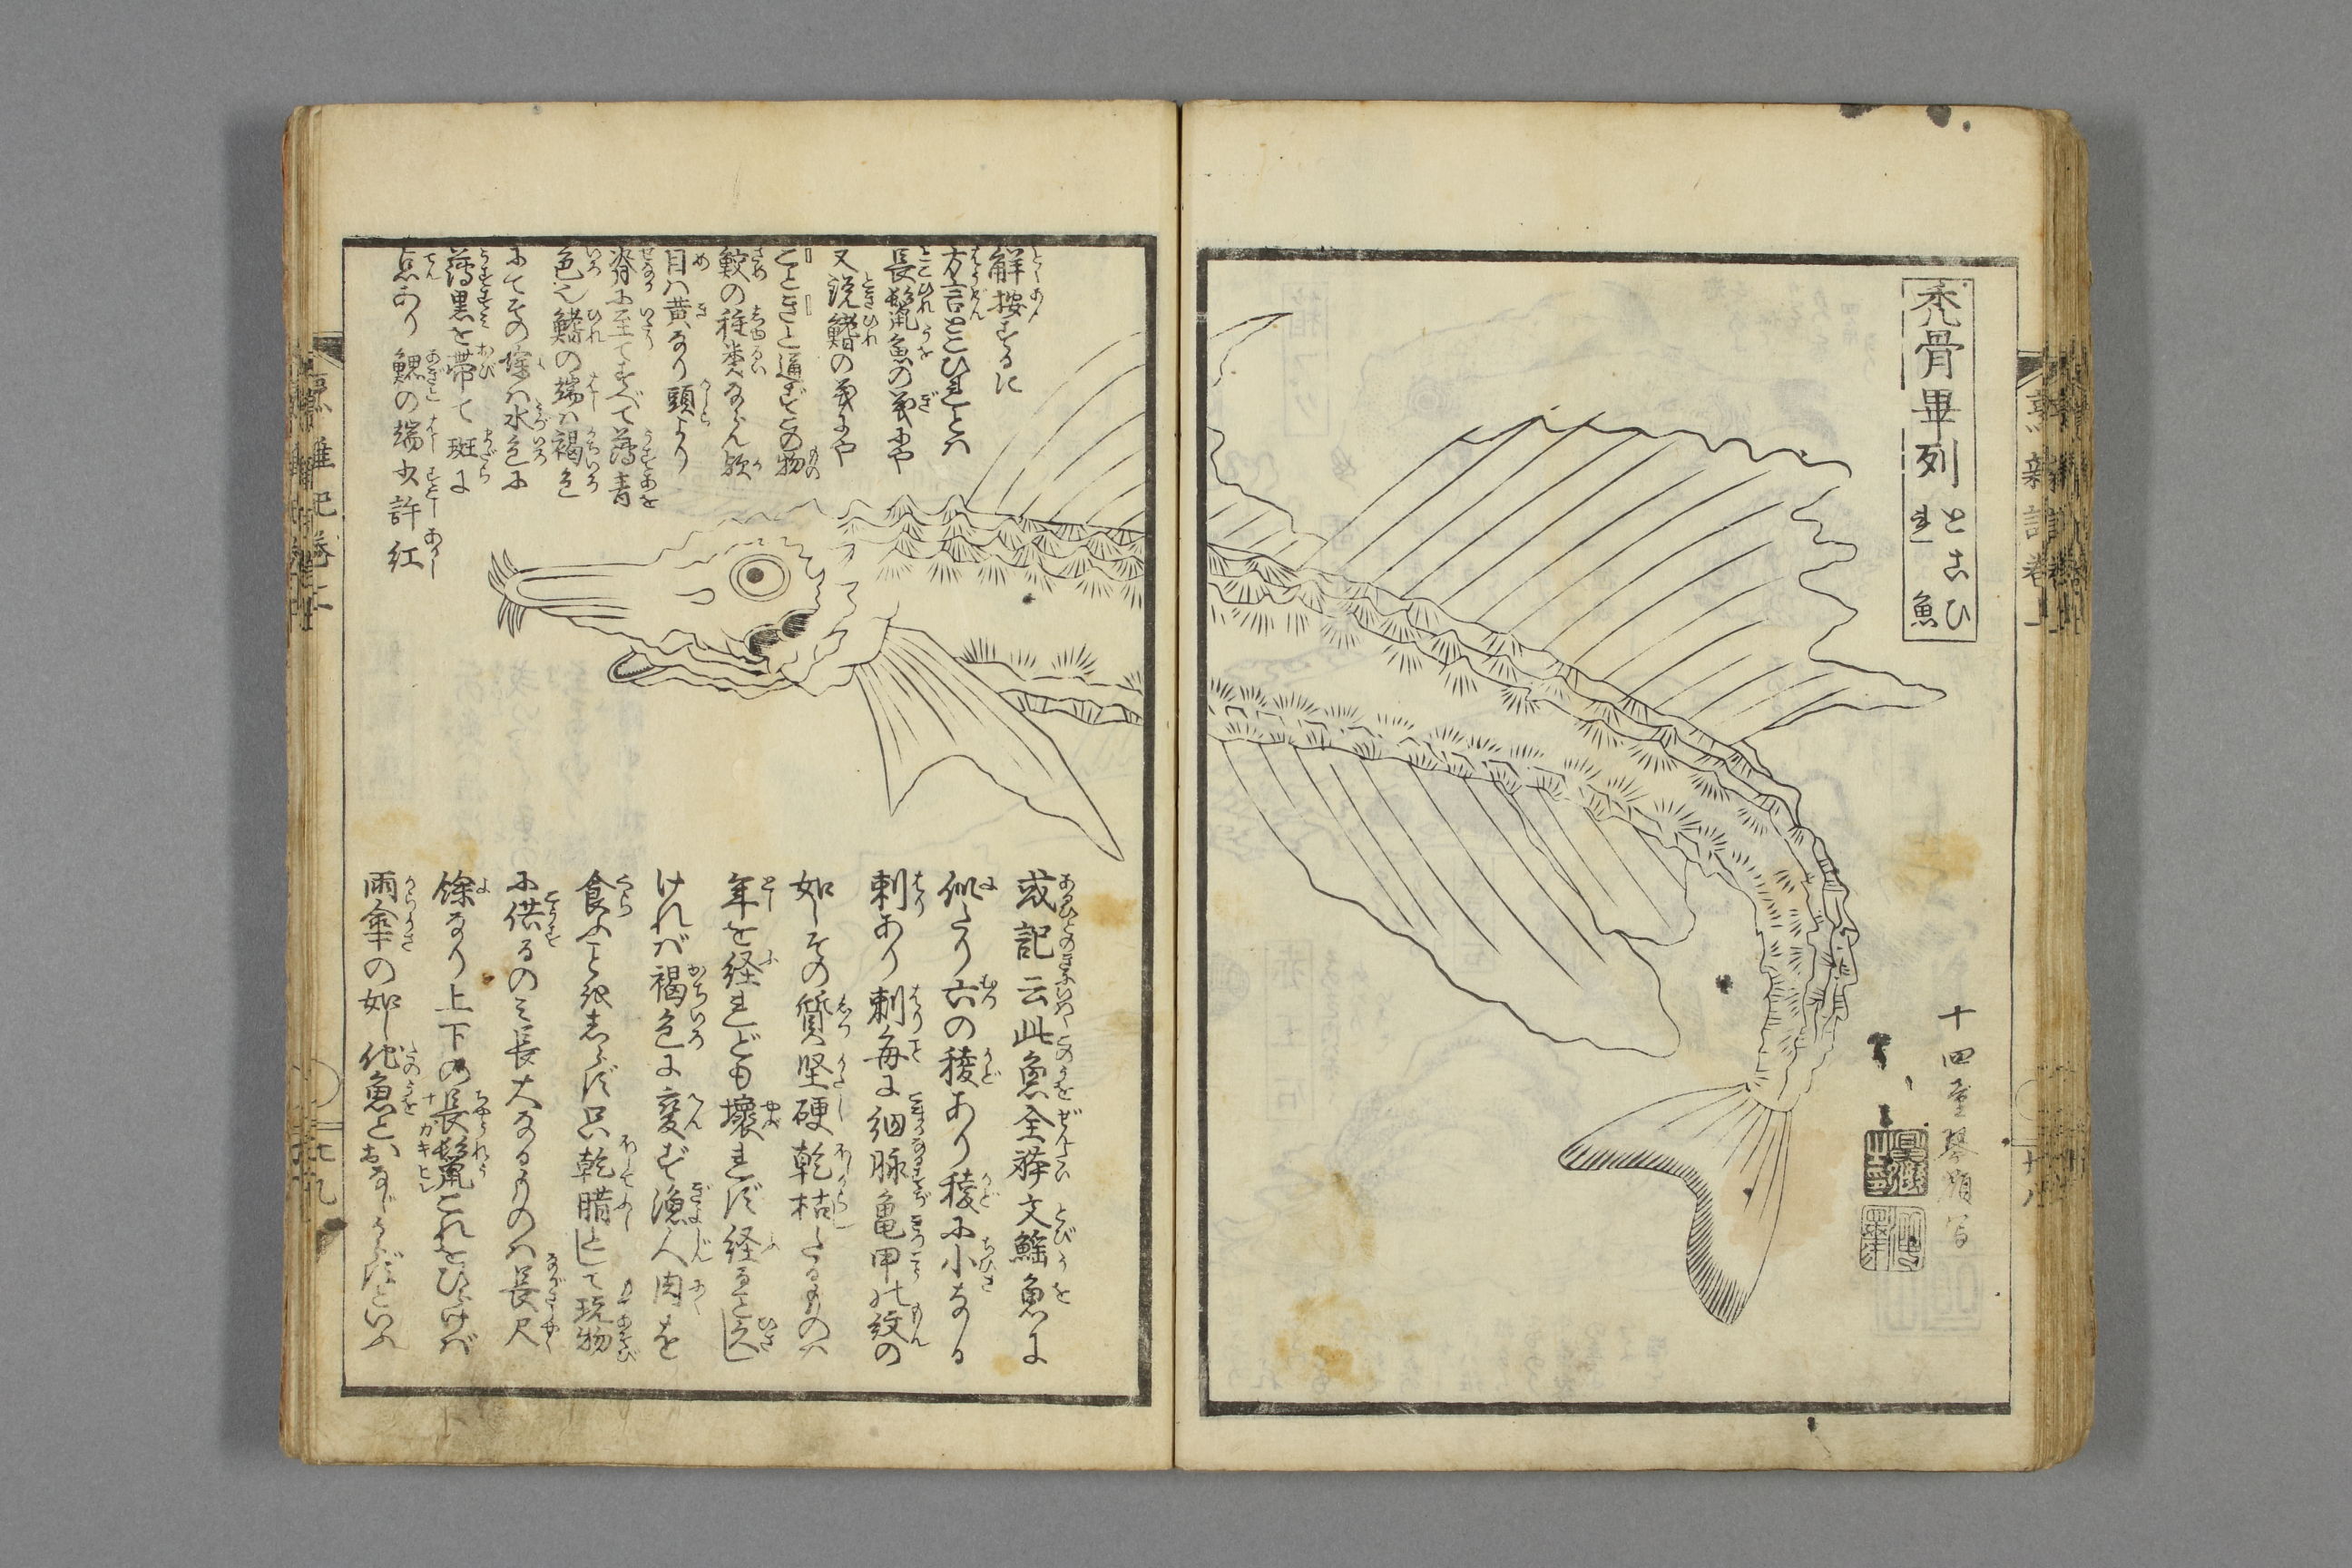 禿骨畢列
とこひ
れ魚
十四童琴嶺写
解按ずるに
方言とこひれとハ
長鬣魚の義にや
又説鰭の義にや
ことききと通ずこの物
鮫の種類ならん歟
目ハ黄なり頭より
脊に至てすべて薄青
色也鰭の端ハ褐色
にてその深ハ水色に
薄黒を帯て斑に
点あり鰓の端少許紅
或記云此魚全体文鰩魚に
似たり六の稜あり稜に小なる
刺あり刺毎に細脈亀甲の紋の
如しその質堅硬乾枯したるものハ
年を経れども壊れず経ること久し
ければ褐色に変ず漁人肉を
食ふことをしらず只乾腊として玩物
に供るのミ長大なるものハ長尺
餘なり上下の長鬣これをひらけば
雨傘の如し他魚とおなじからずといふ